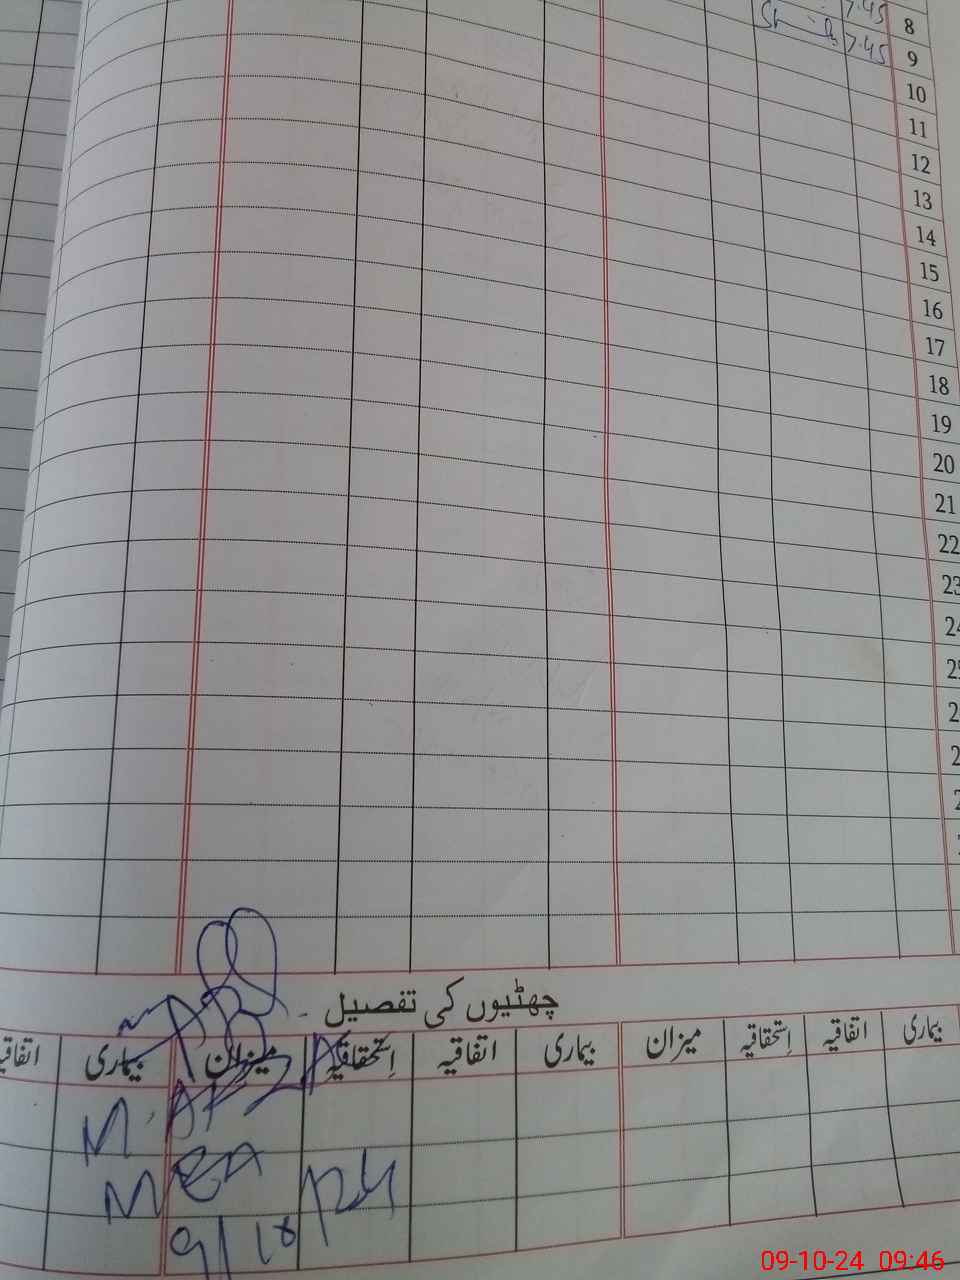 7.45 8
7.45 9
10
11
12
13
14
15
16
17
18
19
20
21
22
23
چھٹیوں کی تفصیل
بیماری اتفاقیہ اِستحقاقیہ میزان بیماری اتفاقیہ اِستحقاقیہ میزان بیماری
M. AFZAL
MEA
9/10/24
09-10-24 09:46